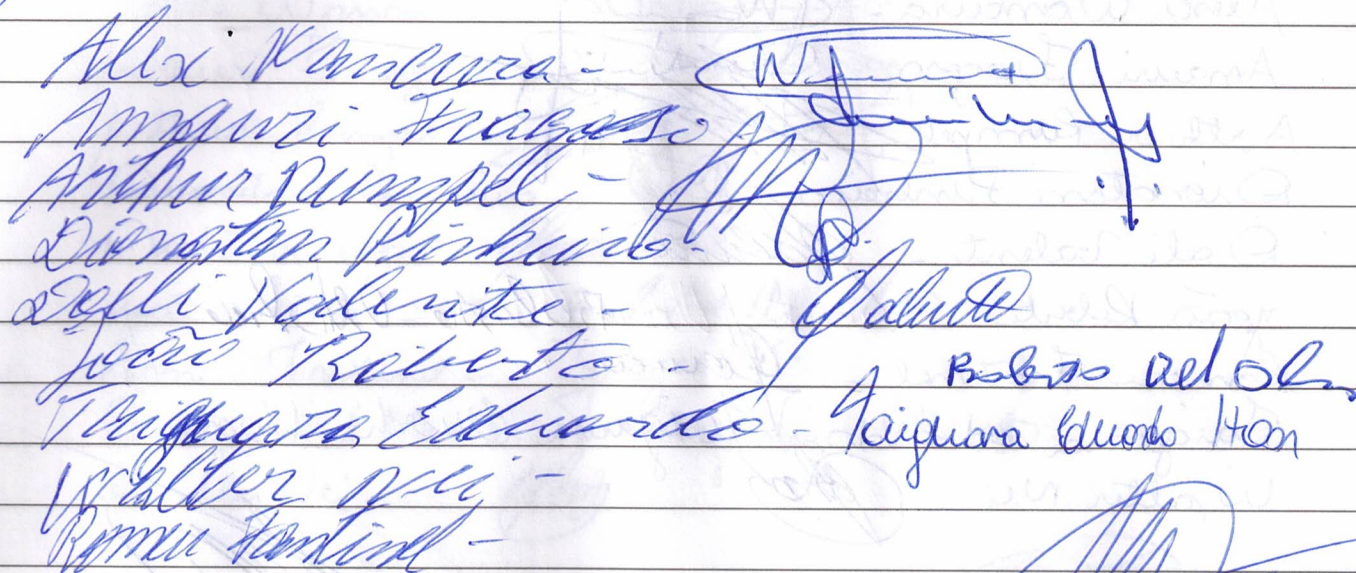 Alex Wancura -
Amauri Fragoso
Arthur Rumpel, -
Dionatan Pinheiro -
Delli Valente - Valente
João Roberto - Roberto
Taiguara Eduardo - Taiguara Eduardo
Walter Nei, -
Romeu Fantinel -